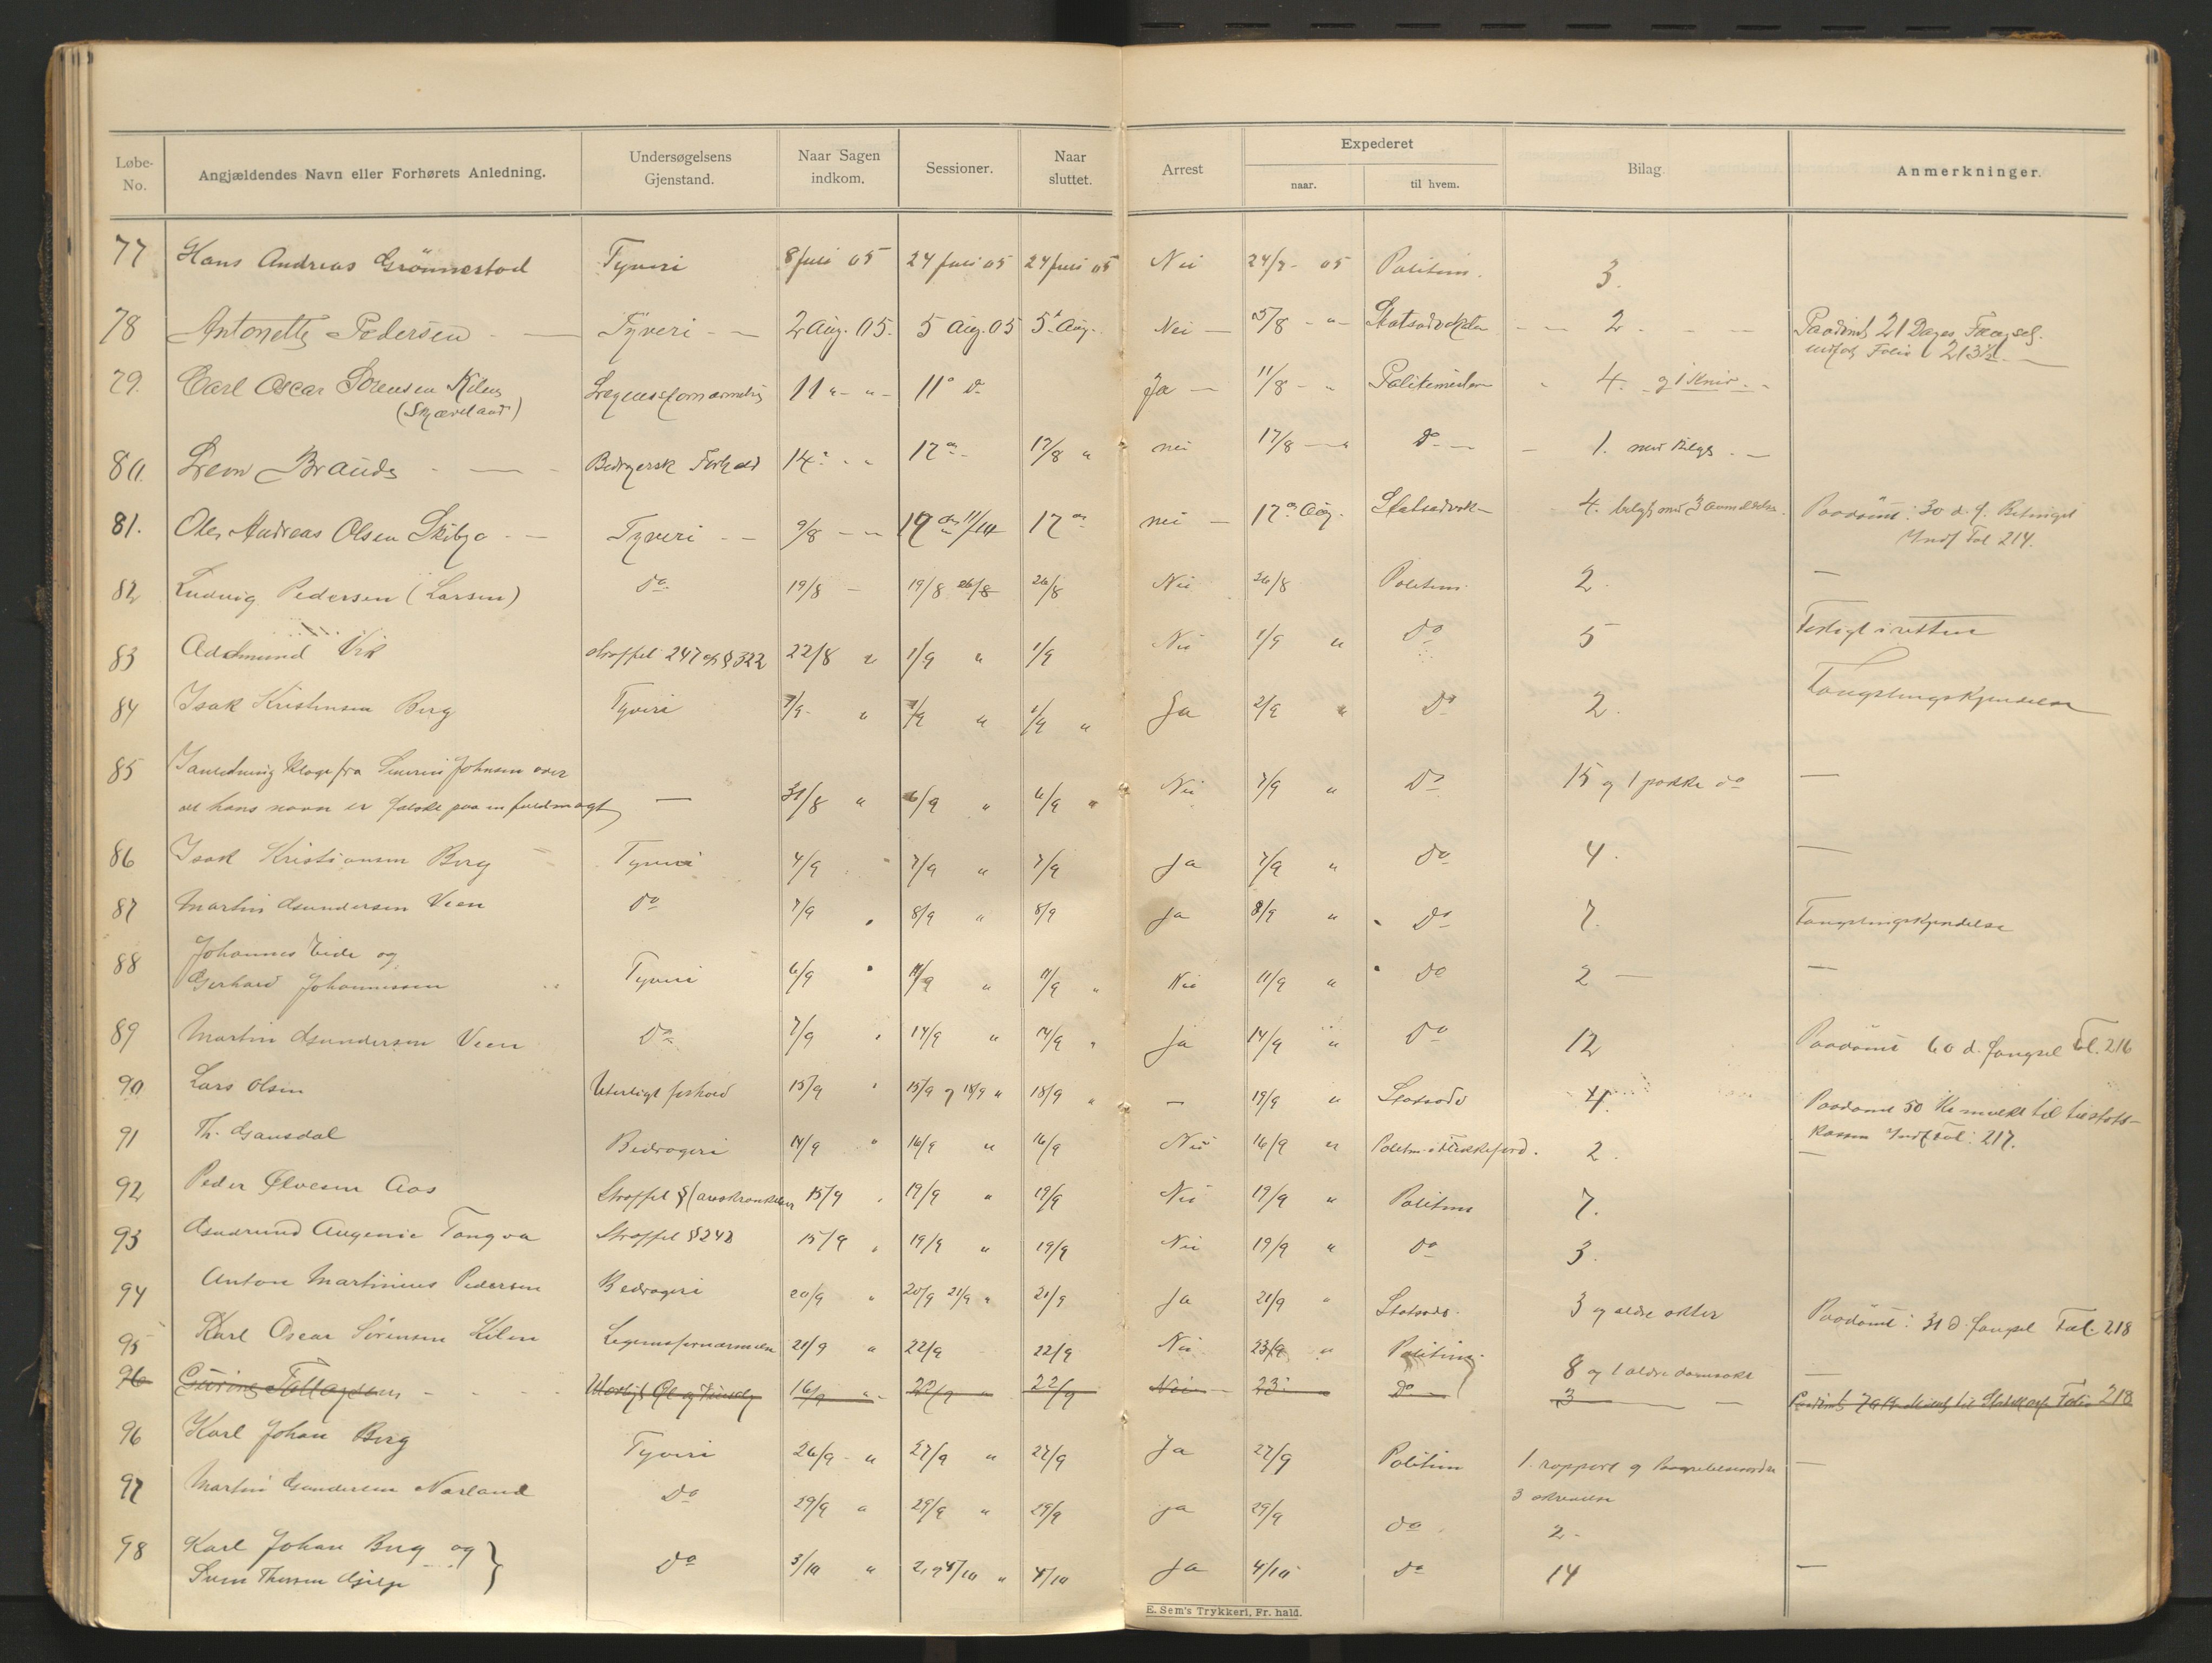 Løbe-No. Angjældendes Navn eller Forhørets Anledning. Undersøgelsens Gjenstand. Naar Sagen indkom. Sessioner. Naar sluttet. Arrest Expederet naar. til hvem. Bilag Anmerkninger.
77 Hans Andreas Grönnestad Tyveri 8 juli 05 24 juli 05 24 juli 05 Nei 24/7 - 05 Politim. 3.
78 Antonette Pedersen - — Tyveri - — 2 Aug. 05. 5 Aug. 05 5 Aug. Nei — 5/8 - " - Statsadvokaten - — 2. - — Paadömt 21 Dages Fængsel.
indf Folio 213
79. Carl Oscar Sörensen Kilen 11 " - " - 11 Do Ja — 11/8 - " Politimesteren " 4. og 1 Kniv. -
(Skjæveland)
80. Brauds - — - Bedragersk Forhold 14 " - " 17 - 17/8 " nei 17/8 — " Do — - 1. med Bilag. —
81. Ole Andreas Olsen - — Tyveri - — 9/8 — " 17 17 nei — 17 Aug. Statsadvok — 4. 3 Paadömt: 30 d. f. Betinget
Indf Fol 214.
82 Ludvig Pedersen (Larsen) do. 19/8 — 19/8 26/8 26/8 Nei 26/8 Politim. 2. —
83 Vik straffel 247 og § 322 22/8 " 1/9 " 1/9 Nei 1/9 " Do 5
84 Isak Kristensen Berg Tyveri 1/9 " 1/9 " Ja 2/9 " Do 2. Fængslingskjendelse
85 I anledning klage fra Severin Johnsen over
at hans navn er falskt paa en fuldmagt — 31/8 " 6/9 " 6/9 " Nei 7/9 " Do 15 og 1 pakke do —
86 Isak Kristiansen Berg — Tyveri 4/9 " 7/9 " 7/9 Ja 7/9 " Do 4. —
87 Martin Gundersen Veen do 7/9 " 8/9 " 8/9 Ja 8/9 " Do 7. Fængslingskjendelse
88 Johannes Eide og
Gerhard Johannessen Tyveri 6/9 " 11/9 " 11/9 " Nei 11/9 " Do 2 — —
89 Martin Gundersen Veen Do 7/9 " 14/9 " 14/9 " Ja 14/9 " Do 12 Paadömt 60 d. fængsel Fol. 216
90 Lars Olsen Uterligt forhold 15/9 " 15/9 og 18/9 " 18/9 " — 19/9 " Statsadv 4. Paadömt 50 Kr mulkt til
kassen Indf Fol: 217.
91 Th. Gausdal Bedrageri 14/9 " 16/9 " 16/9 Nei 16/9 " Politm. i Flekkefjord. 2. —
92 Peder Aas Straffel § 15/9 " 19/9 " 19/9 Nei 19/9 " Politim 7.
93 Augenie Tangva Straffel § 15/9 " 19/9 " 19/9 Nei 19/9 " do 3.
94 Anton Martinius Pedersen Bedrageri 20/9 " 20/9 21/9 " 21/9 Ja 21/9 " Statsadv. 3 og ældre akter Paadömt: 31 d. fængsel Fol. 218
95 Karl Oscar Sörensen Kilen 21/9 " 22/9 22/9 Nei 23/9 " Politim. 8 og 1 ældre
96 16/9 " - 22/9 " 22/9 Nei — 23 " Do — 3 — — Folio 218
96 Karl Johan Berg Tyveri 26/9 - " 27/9 " 27/9 Ja 27/9 Politim 1. rapport og —
3
97 Martin Gundersen Norland Do 29/9 " 29/9 " 29/9 ja 29/9 do. 2 -
98 Karl Johan Berg og } Do 3/10 " 2 og 4/10 " 4/10 Ja 4/10 do 14 —
Sven
E. Sem's Trykkeri, Fr. hald.